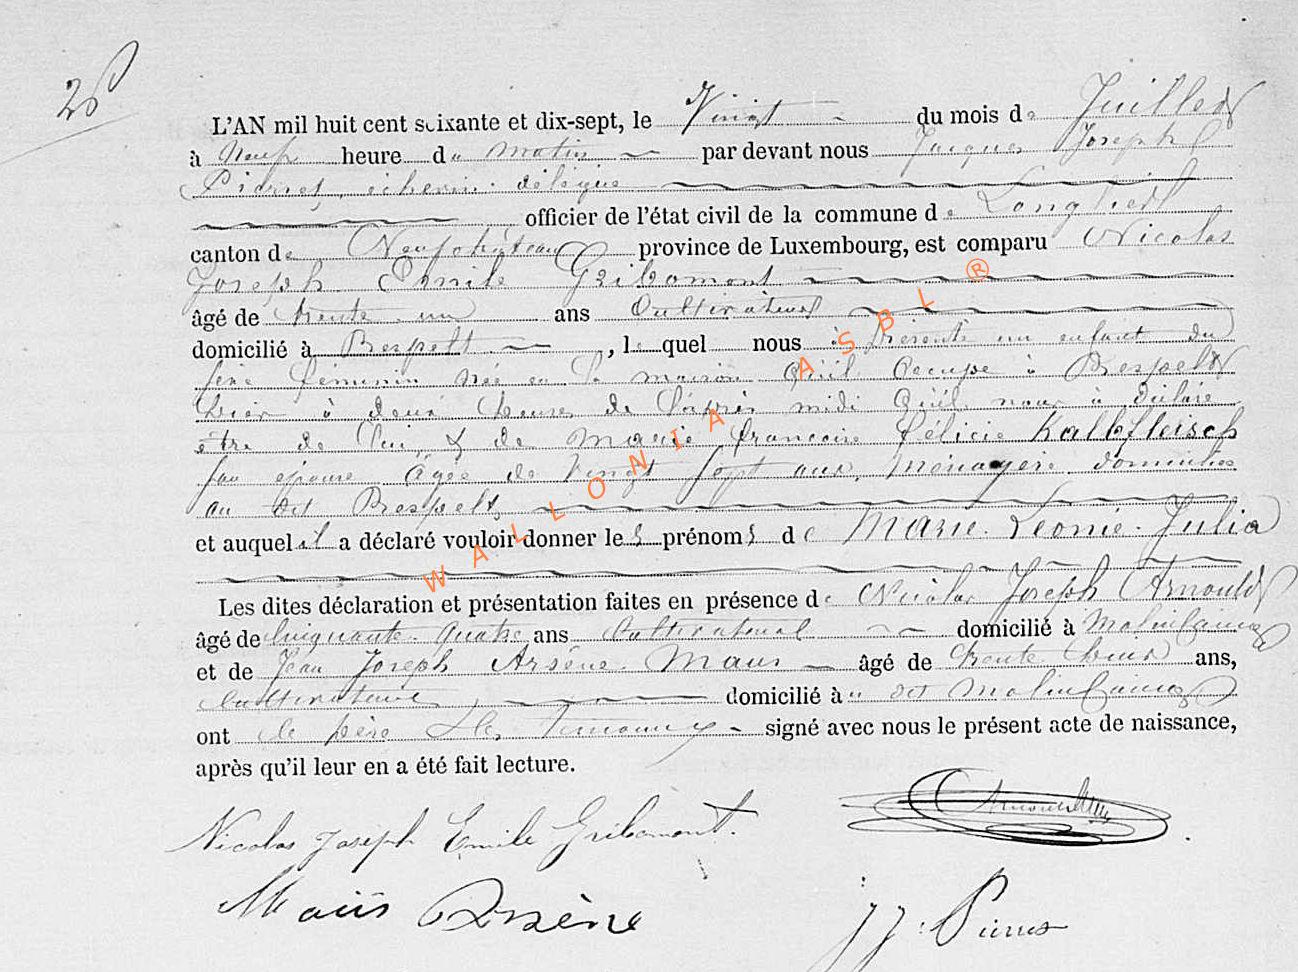 28
L'AN mil huit cent soixante et dix-sept, le Vingt du mois de Juillet
à Neuf heure du matin par devant nous Jacques Joseph
Pierret, échevin délégué
officier de l'état civil de la commune de Longlier
canton de Neufchâteau province de Luxembourg, est comparu Nicolas
Joseph Emile Gribomont
âgé de trente un ans Cultivateur
domicilié à Respelt, lequel nous à présenté un enfant du
sexe féminin née en la maison qu'il occupe à Respelt
hier à deux heures de l'après midi qu'il nous à déclaré
être de lui & de Marie françoise félicie Kalbfleisch
son épouse âgée de vingt sept ans, Ménagère domiciliée
au dit Respelt
et auquel il a déclaré vouloir donner les prénoms de Marie. Léonie. Julia
Les dites déclaration et présentation faites en présence de Nicolas Joseph Arnould
âgé de cinquante quatre ans Cultivateur domicilié à Molinfaing
et de Jean Joseph Arsène Maus âgé de trente deux ans,
cultivateur domicilié à dit Molinfaing
ont le père & les témoins signé avec nous le présent acte de naissance,
après qu'il leur en a été fait lecture.
Nicolas Joseph Emile Gribomont.
Arnould
Maüs Arsène
J J. Pierret
WALLONIA ASBL ®